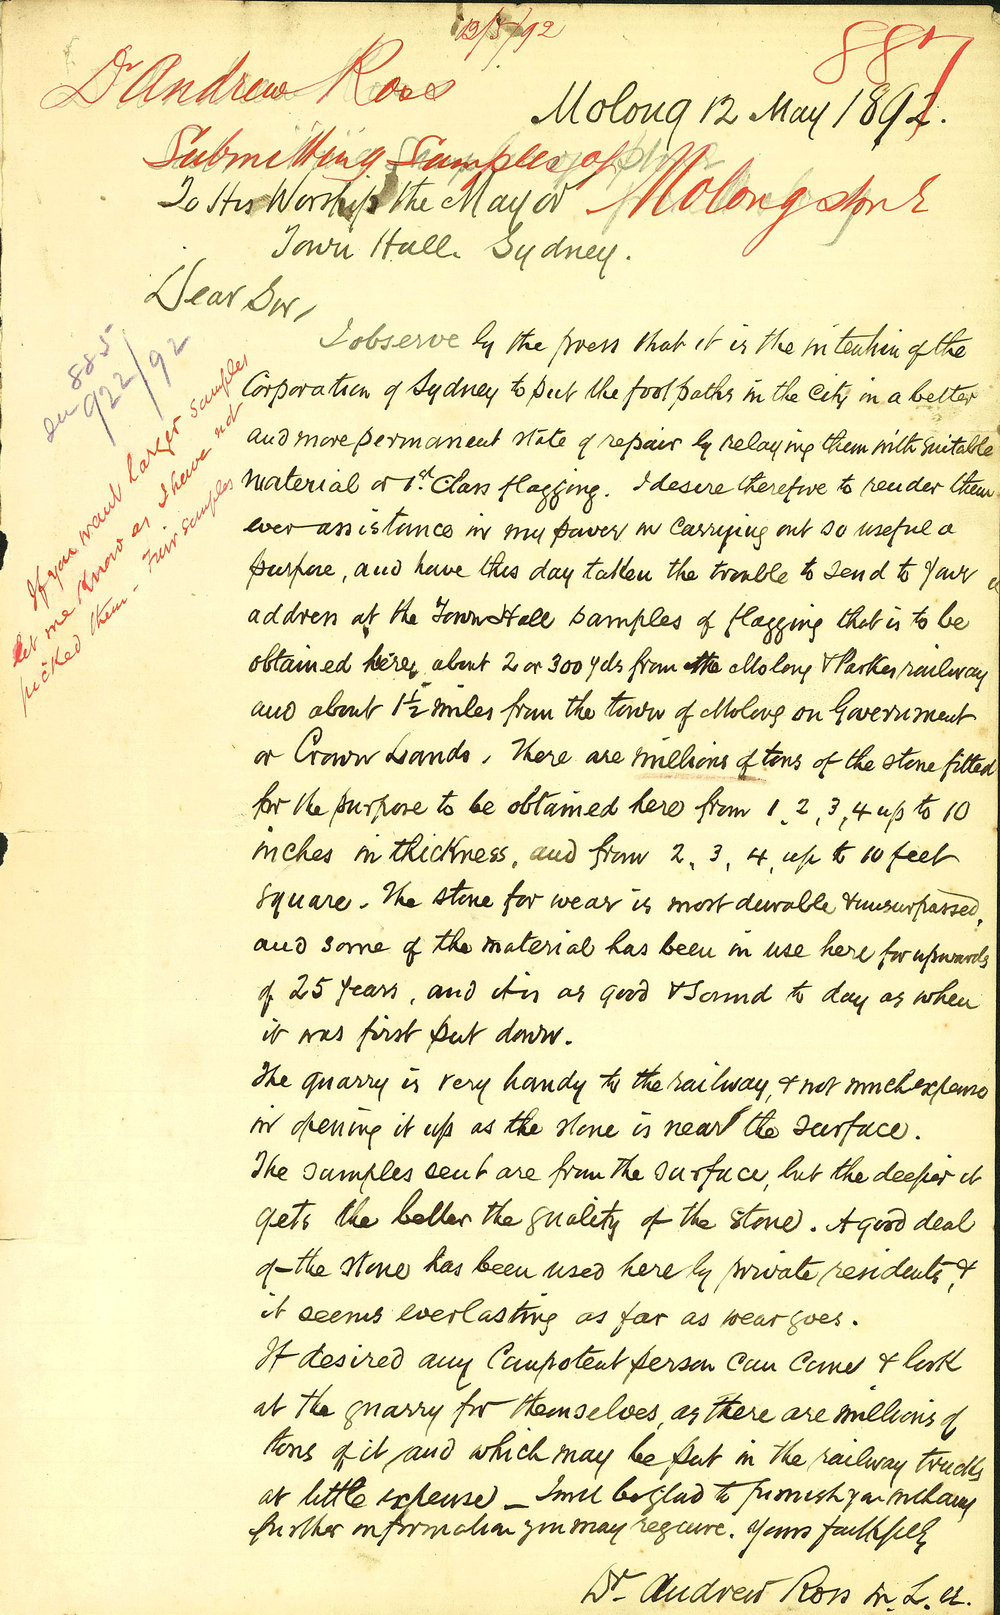 12/5/92
887
Dr Andrew Ross
Molong 12 May 1892.
Submitting Samples of
Molong stone
To His Worship the Mayor
Town Hall. Sydney.
Dear Sir,
I observe by the press that it is the intention of the
Corporation of Sydney to put the footpaths in the city in a better
and more permanent state of repair by relaying them with suitable
material or 1st Class flagging. I desire therefore to render them
ever assistance in my power in carrying out so useful a
purpose, and have this day taken the trouble to send to your
address at the Town Hall samples of flagging that is to be
obtained here, about 2 or 300 yds from the Molong & Parkes railway
and about 1½ miles from the town of Molong on Government
or Crown Lands. There are millions of tons of the stone fitted
for the purpose to be obtained here from 1, 2, 3, 4 up to 10
inches in thickness, and from 2, 3, 4, up to 10 feet
square. The stone for wear is most durable & unsurpassed,
and some of the material has been in use here for upwards
of 25 years, and it is as good & sound to day as when
it was first put down.
The quarry is very handy to the railway, & not much expense
in opening it up as the stone is near the surface.
The samples sent are from the surface, but the deeper it
gets the better the quality of the stone. A good deal
of the stone has been used here by private residents, &
it seems everlasting as far as wear goes.
If desired any Competent person can come & look
at the quarry for themselves, as there are millions of
tons of it and which may be put in the railway trucks
at little expense _ I will be glad to furnish you with any
further information you may require. Yours faithfully
Dr. Andrew Ross M.L.A.
885
922/92
If you want larger samples
let me know as I have not
picked them - Fair samples